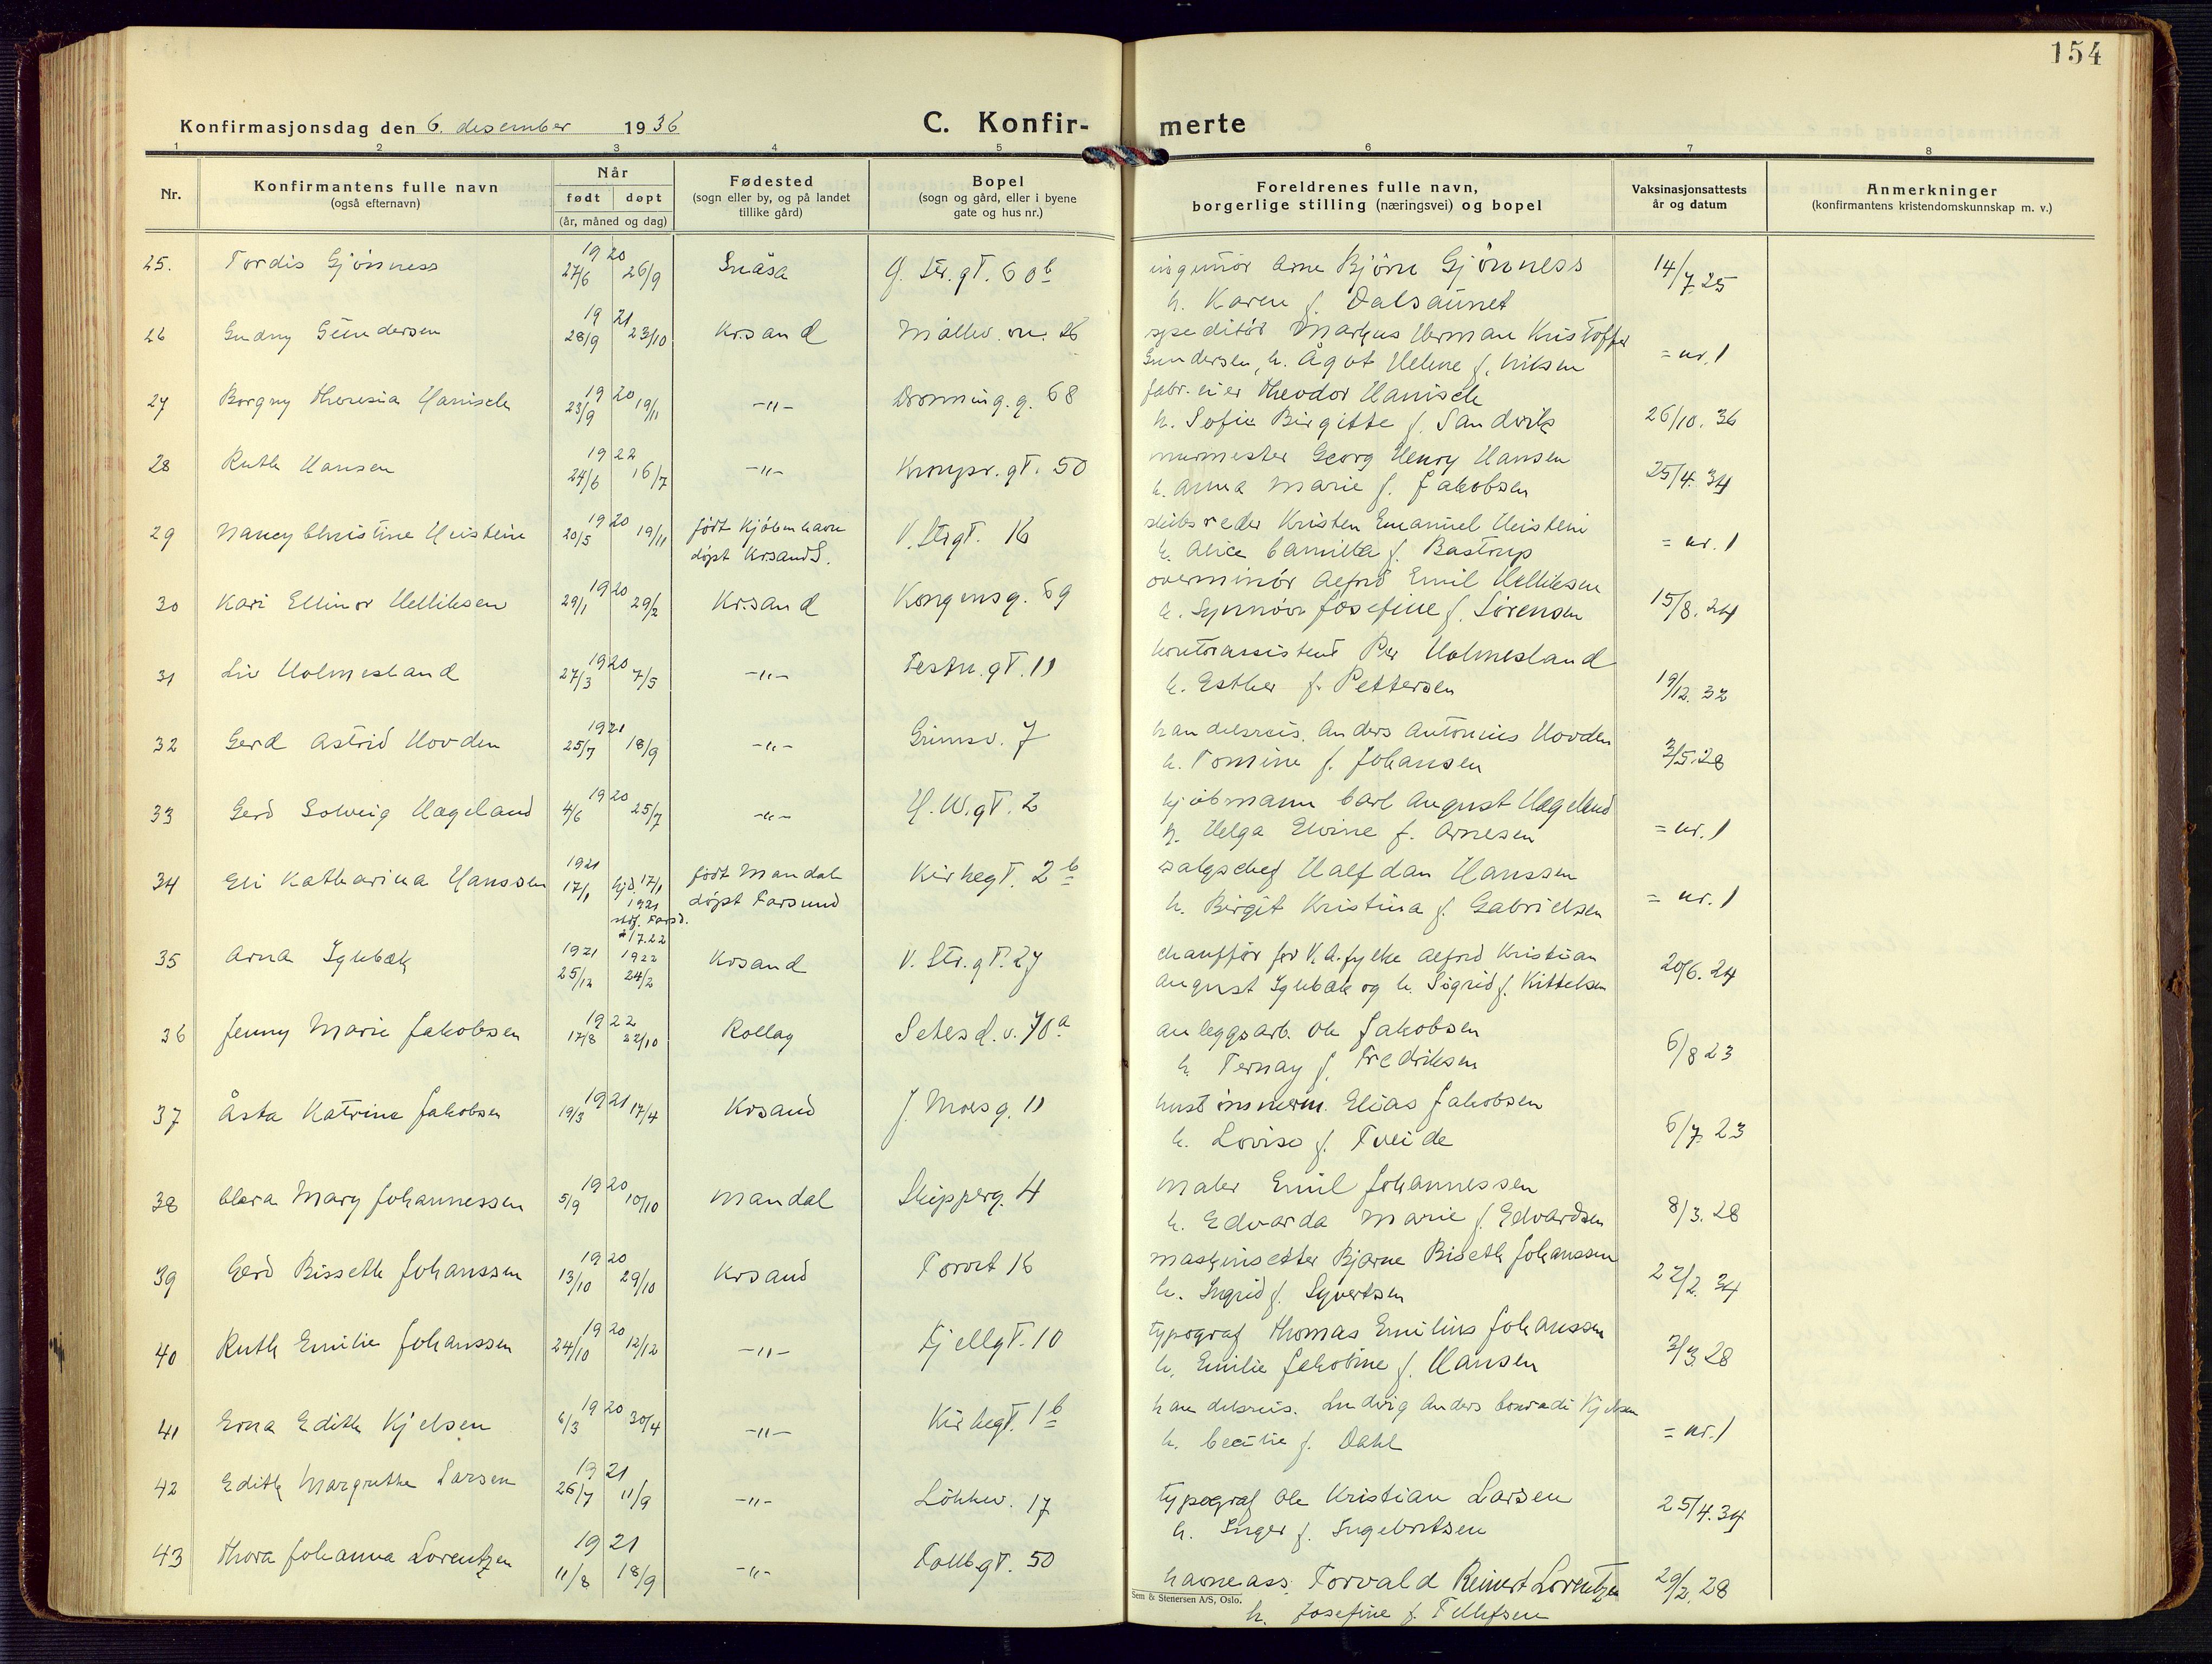 154
Konfirmasjonsdag den 6. desember 1936
C. Konfir- merte
1 2 3 4 5 6 7 8
Nr.
Konfirmantens fulle navn
(også efternavn)
Når
født døpt
(år, måned og dag)
Fødested
(sogn eller by, og på landet
tillike gård)
Bopel
(sogn og gård, eller i byene
gate og hus nr.)
Foreldrenes fulle navn,
borgerlige stilling (næringsvei) og bopel
Vaksinasjonsattests
år og datum
Anmerkninger
(konfirmantens kristendomskunnskap m. v.)
25. Tordis Gjönness 1920 27/6 26/9 Snåsa Ø. Str.gt. 60b ingeniör Arne Björn Gjönness 14/7 25
h. Karen f. Dalsaunet
26 Gudny Gundersen 1921 28/9 23/10 Krsand Möllev. 26 speditör Markus Herman Kristoffer
Gundersen, h. Ågot Helene f. = nr. 1
27 Borgny Theresia Hanisch 1920 23/9 19/11 -"- Dronning.g. 68 fabr.eier Theodor Hanisch
h. Sofie Birgitte f. Sandvik 26/10. 36
28 Ruth Hansen 1922 24/6 16/7 -"- Kronpr.gt. 50 murmester Georg Henry Hansen
h. Anna Marie f. Jakobsen 25/4. 34
29 Nancy Christine Heistein 1920 20/5 19/11 født Kjöbenhavn V. Str.gt. 16 skibsreder Kristen Emanuel Heistein
døpt KrsandS. h. Alice Camilla f. Bastrup = nr. 1
30 Kari Ellinor Helliksen 1920 29/1 29/2 Krsand Kongensg. 69 overminör Alfred Emil Helliksen
h. Synnöve Josefine f. Sörensen 15/8. 24
31 Liv Holmesland 1920 27/3 7/5 -"- Festn.gt. 11 kontorassistent Per Holmesland
h. Esther f. Pettersen 19/12. 32
32 Gerd Astrid Hovden 1921 25/7 18/9 -"- Grimsv. 7 handelsreis. Anders Antonius Hovden
h. Tomine f. Johansen 3/5. 28
33 Gerd Solveig Hægeland 1920 4/6 25/7 -"- H. W.gt. 2 kjöbmann Carl August Hægeland
h. Helga Elvine f. Arnesen = nr. 1
34 Eli Katharina Hanssen 1921 17/1 hjd. 17/1 født Mandal Kirkegt. 2b salgschef Halfdan Hanssen
1921 døpt Farsund
stdf. Farsd. h. Birgit Kristina f. Gabrielsen = nr. 1
17.22
35 Arna Iglebæk 1921 25/12 1922 24/2 Krsand V. Str.gt. 27 chaufför for V.A.fylke Alfred Kristian
August Iglebæk og h. Sigrid f. Kittelsen 20/6. 24
36 Jenny Marie Jakobsen 1922 17/8 22/10 Rollag Setesd.v. 70a anleggsarb. Ole Jakobsen
h. Ternay f. Fredriksen 6/8 23
37 Åsta Katrine Jakobsen 1921 19/3 17/4 Krsand J. Moesg. 11 Elias Jakobsen
h. Loviso f. Tveide 6/7. 23
38 Clara Mary Johannessen 1920 5/9 10/10 Mandal Skipperg. 4 maler Emil Johannessen
h. Edvarda Marie f. Edvardsen 8/3. 28
39 Gerd Bisseth Johanssen 1920 13/10 29/10 Krsand Torvet 16 maskinsetter Bjarne Biseth Johanssen
h. Ingrid f. Syvertsen 22/2. 34
40 Ruth Emilie Johanssen 1920 24/10 12/12 -"- Kjellgt. 10 typograf Thomas Emilius Johanssen
h. Emilie Jakobine f. Hansen 3/3. 28
41 Erna Edith Kjelsen 1920 6/3 30/4 -"- Kirkegt. 1b handelsreis. Ludvig Anders Conradi Kjelsen
h. Cecilie f. Dahl = nr. 1
42 Edith Margrethe Larsen 1921 26/7 11/9 -"- Lökkev. 17 typograf Ole Kristian Larsen
h. Inger f. Ingebretsen 25/4. 34
43 Thora Johanna Lorentzen 1921 11/8 18/9 -"- Tollb.gt. 50 havneass. Torvald Reinert Lorentzen
h. Josefine f. Tellefsen 29/2. 28
Sem & Stenersen A/S, Oslo.